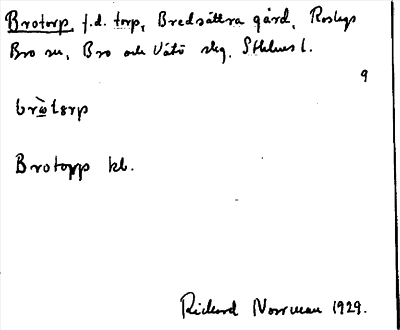 Brotorp f.d. torp, Bredsättra gård, Roslags
Bro sn, Bro och Vätö skg, Sthlms l.
9
Brotopp kl.
Rickard Norrman 1929.